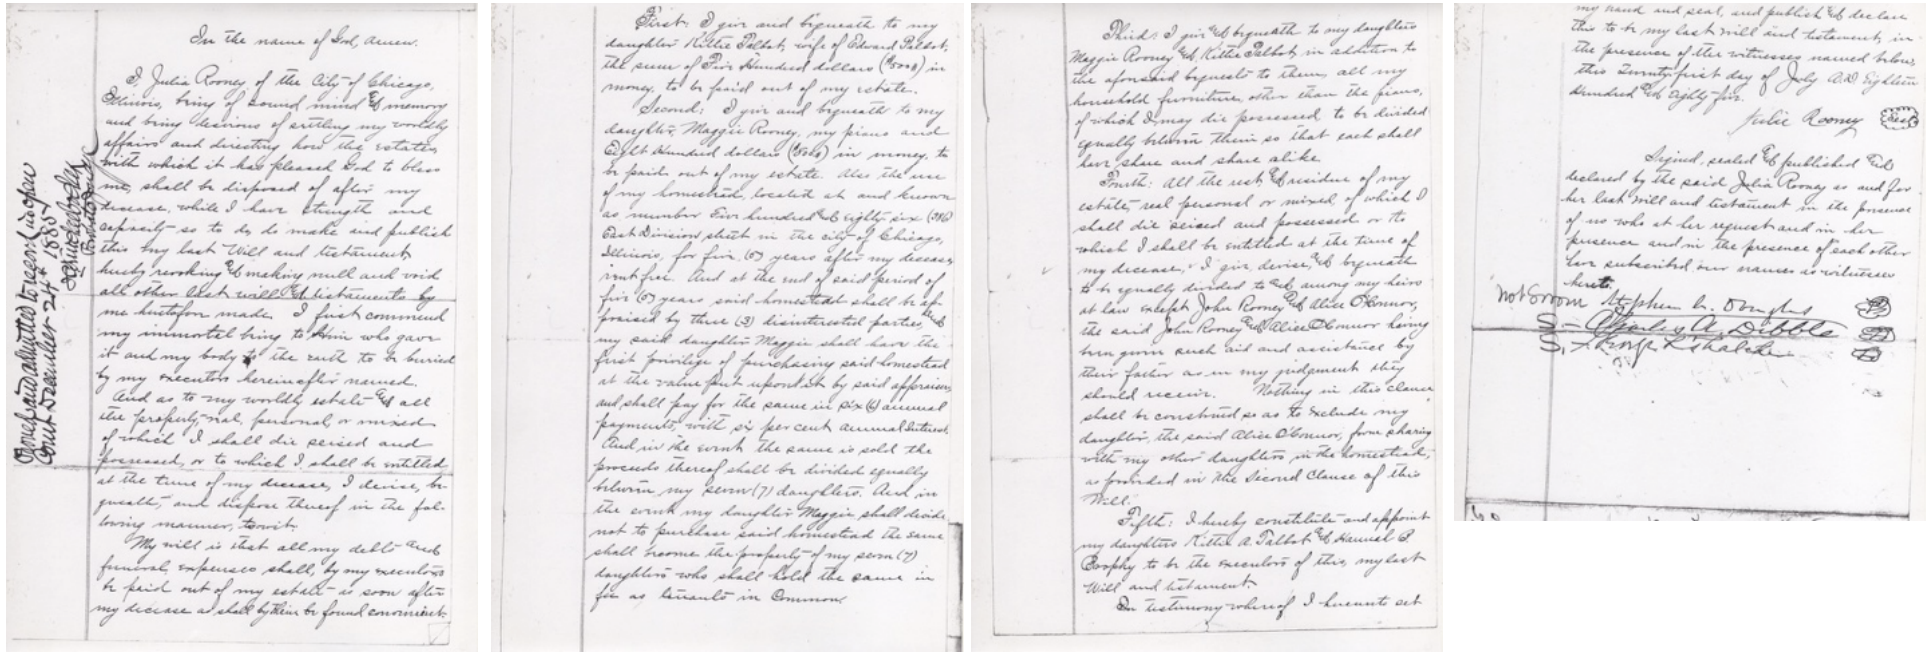 In the name of God, amen.
I, Julia Rooney of the City of Chicago,
Illinois, being of sound mind & memory
and being desirous of settling my worldly
affairs and directing how the estate,
with which it has pleased God to bless
me, shall be disposed of after my
decease, while I have strength and
capacity so to do, do make and publish
this my last Will and testament,
hereby revoking & making null and void
all other last wills & testaments by
me heretofore made. I first commend
my immortal being to Him who gave
it and my body to the earth to be buried
by my executors hereinafter named.
And as to my worldly estate & all
the property, real, personal, or mixed
of which I shall die seised and
possessed, or to which I shall be entitled
at the time of my decease, I devise, be-
queath, and dispose thereof in the fol-
lowing manner, to wit:
My will is that all my debts and
funeral expenses shall, by my executors
be paid out of my estate as soon after
my decease as shall by them be found convenient.
Proved and admitted to record in open
Court December 24th 1885
First: I give and bequeath to my
daughter Kittie Talbot, wife of Edward Talbot,
the sum of Five Hundred dollars ($500) in
money, to be paid out of my estate.
Second: I give and bequeath to my
daughter, Maggie Rooney, my piano and
Eight Hundred dollars in money, to
be paid out of my estate. Also the use
of my homestead, located at and known
as number Five hundred & eighty six (586)
East Division street in the city of Chicago,
Illinois, for five (5) years after my decease,
rent free. And at the end of said period of
five (5) years said homestead shall be ap-
praised by three (3) disinterested parties, and
my said daughter Maggie shall have the
first privilege of purchasing said homestead
at the value put upon it by said appraisers
and shall pay for the same in six (6) annual
payments, with six per cent annual interest.
And in the event the same is sold the
proceeds thereof shall be divided equally
between my seven (7) daughters. And in
the event my daughter Maggie shall decide
not to purchase said homestead the same
shall become the property of my seven (7)
daughters who shall hold the same in
fee as tenants in Common.
Third: I give & bequeath to my daughters
Maggie Rooney & Kittie Talbot in addition to
the aforesaid bequests to them, all my
household furniture, other than the piano,
of which I may die possessed to be divided
equally between them so that each shall
have share and share alike.
Fourth: All the rest & residue of my
estate, real personal or mixed of which I
shall die seised and possessed or to
which I shall be entitled at the time of
my decease, I give, devise, & bequeath
to be equally divided to & among my heirs
at law except John Rooney & Alice O'Connor,
the said John Rooney & Alice O'Connor having
been given such aid and assistance by
their father as in my judgment they
should receive. Nothing in this clause
shall be construed so as to exclude my
daughter, the said Alice O'Connor, from sharing
with my other daughters in the homestead,
as provided in the Second Clause of this
Will.
Fifth: I hereby constitute and appoint
my daughters Kittie A. Talbot & Hannah
to be the executors of this, my last
Will and testament.
In testimony whereof I hereunto set
my hand and seal, and publish & declare
this to be my last will and testament, in
the presence of the witnesses named below,
this Twenty first day of July A.D. Eighteen
Hundred & eighty five.
Julia Rooney Seal
Signed, sealed & published and
declared by the said Julia Rooney as and for
her last Will and testament in the presence
of us who at her request and in her
presence and in the presence of each other
have subscribed our names as witnesses
hereto.
Not Sworn Stephen A. Douglas
S. Charles A. Dibble
S.